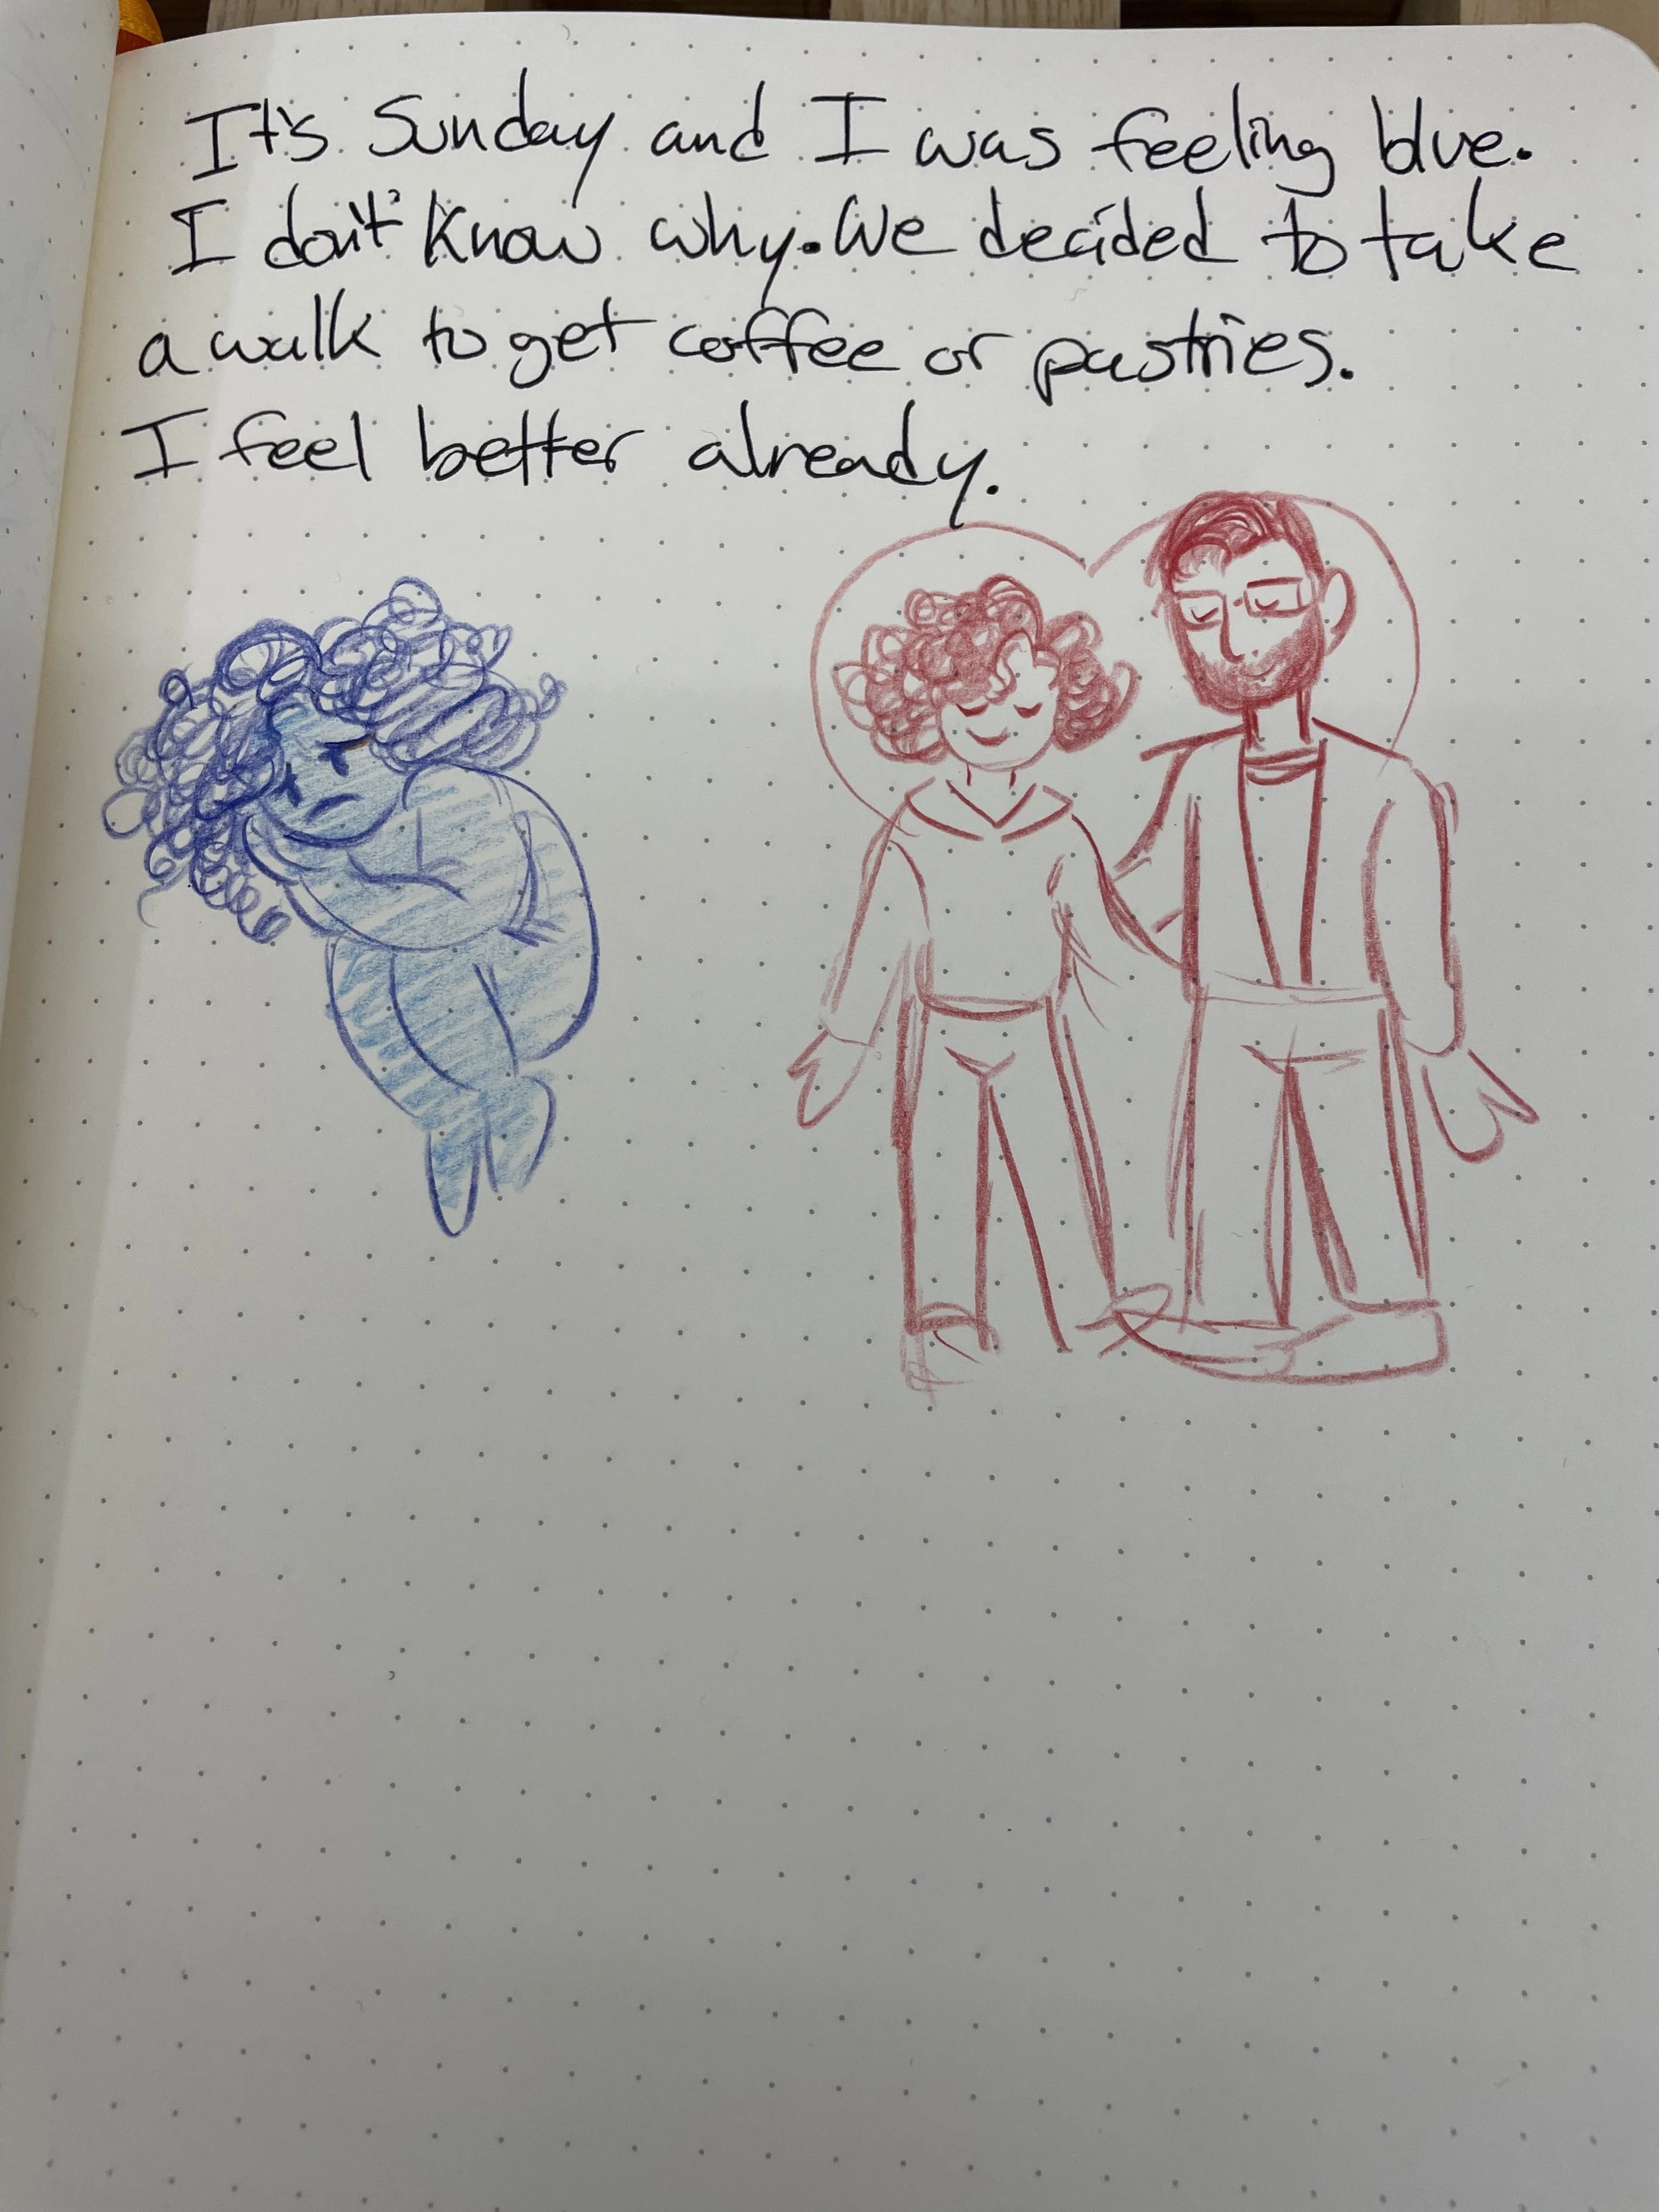 It's Sunday and I was feeling blue.
I don't know why. We decided to take
a walk to get coffee or pastries.
I feel better already.